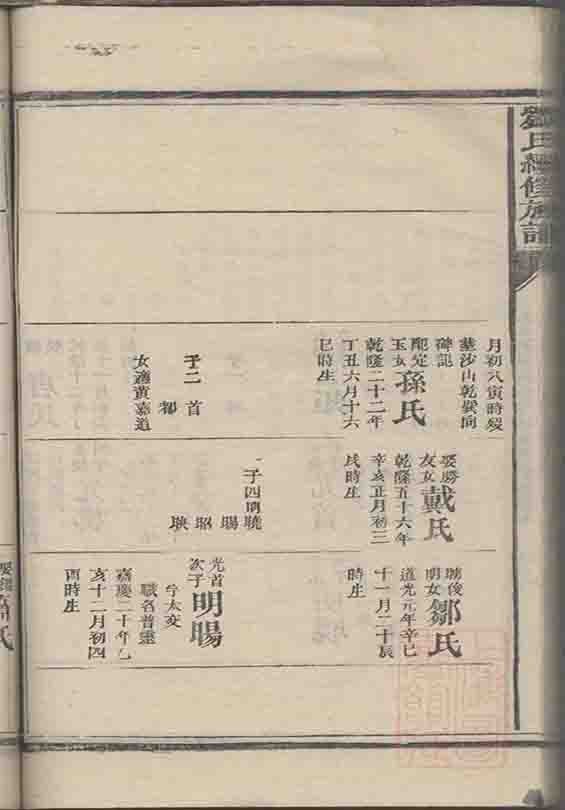 氏經修族譜
月初八寅時歿
墓沙山乾巽向
碑記
配定
玉女
孫氏
乾隆二十二年
丁丑六月十六
巳時生
子二 首
女適黃嘉道
娶勝
友女
戴氏
乾隆五十六年
辛亥正月初三
時生
子四明
暘
昭
映
俊
明女
鄒氏
道光元年辛巳
十一月二十辰
時生
光首
次子
明暘
字太交
職名普靈
嘉慶二十年乙
亥十二月初四
酉時生